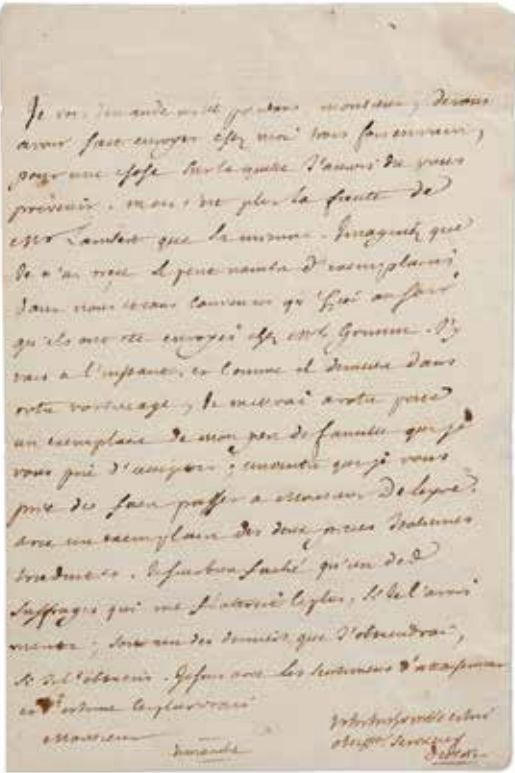 Je vous demande mille pardons monsieur, de vous
avoir fait envoyer chez moi trois fois en vain,
pour une chose sur laquelle J'aurois du vous
prévenir. mais c'est plus la faute de
Mr Lambert que la mienne. Imaginez que
Je n'ai reçu le petit nombre d'exemplaires
dont nous étions convenus qu'hier au soir
qu'ils ont été envoyés chez Mr Grimm. J'y
vais a l'instant. et comme il demeure dans
votre voisinage, Je mettrai a votre porte
un exemplaire de mon pere de famille que je
vous prie d'accepter; ensuite que je vous
prie de faire passer a Monsieur Deleyre.
avec un exemplaire des deux pieces Italiennes
traduites. Je suis bien faché qu'un des
suffrages qui me flatteroit le plus, si Je l'avois
merité; soit un des derniers que J'obtiendrai,
si Je l'obtiens. Je suis avec les sentiments d'attachement
et d'estime les plus vrais
Monsieur
Votre très humble et très
obeisst serviteur
Diderot
dimanche